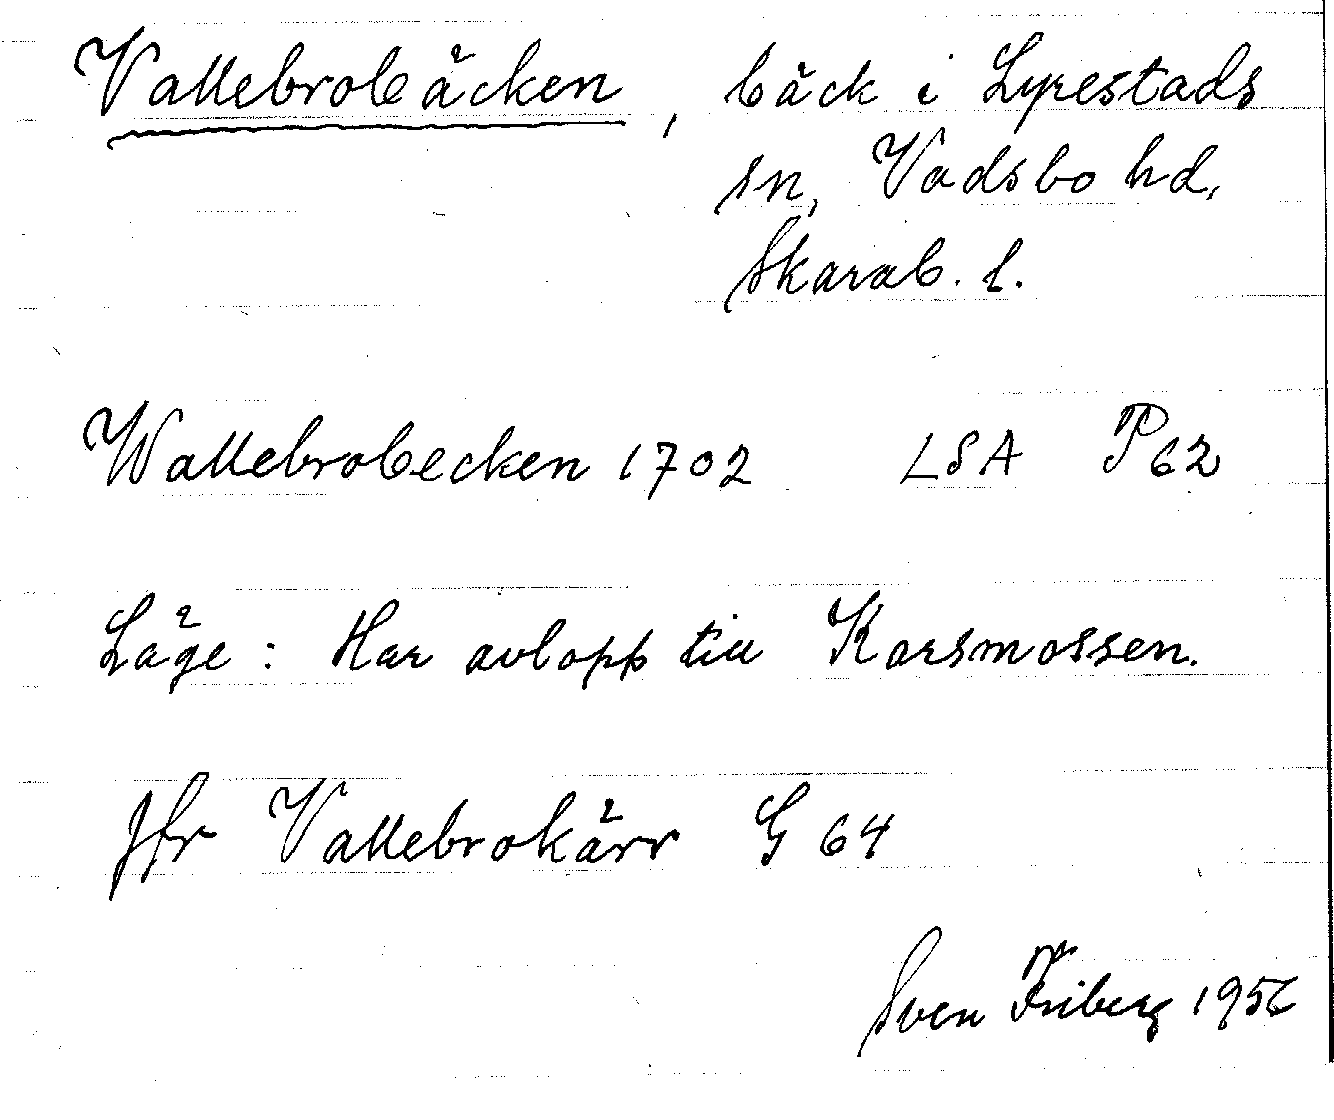 Vallebrobäcken, bäck i Lyrestads
sn, Vadsbo hd,
Skarab. l.
Wallebrobecken 1702 LSA P62
Läge: Har avlopp till Korsmossen.
Jfr Vallebrokärr G 64
Sven Friberg 1956